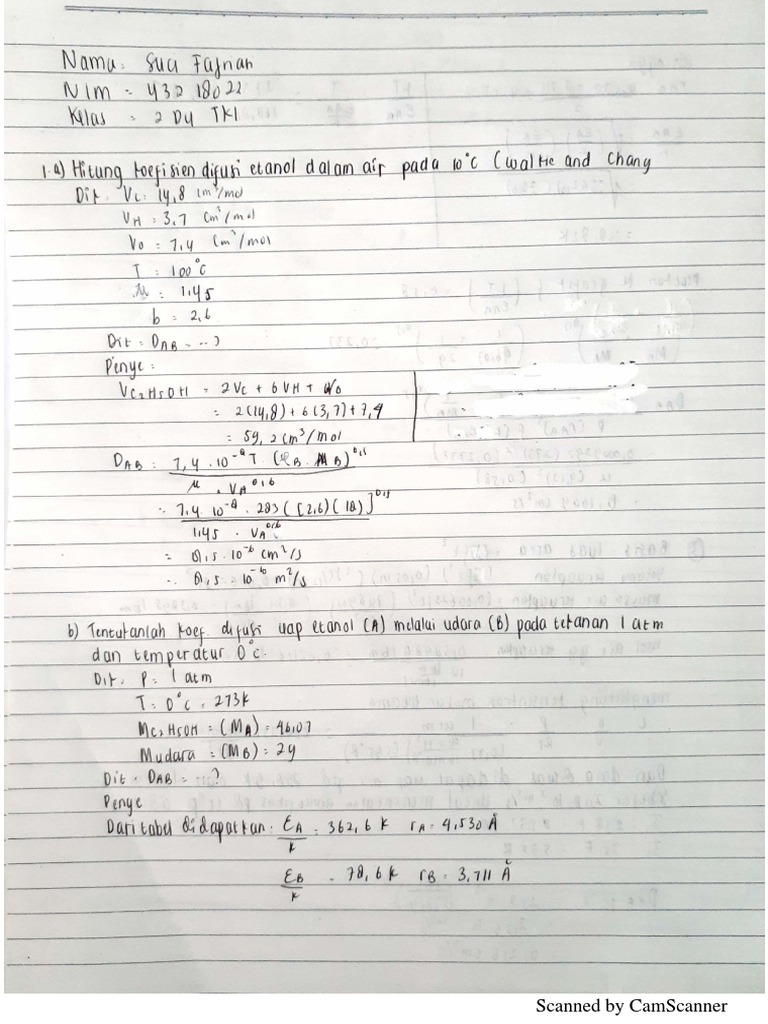 Nama : Suci Fajriah
Nim = 432 18022
Kelas : 2 D4 TKI
1.a) Hitung koefisien difusi etanol dalam air pada 10°C (Walke and Chang
Dit. Vc : 14,8 cm³/mol
VH = 3,7 cm³/mol
Vo = 7,4 cm³/mol
T = 100°C
μ = 1,45
b = 2,6
Dit = DAB = ...?
Penye :
VC2H5OH = 2Vc + 6VH + Vo
= 2(14,8) + 6(3,7) + 7,4
= 59,2 cm³/mol
DAB = 7,4 . 10⁻⁸ T. (φB. MB)^0,5
μ . VA^0,6
= 7,4. 10⁻⁸ . 283 ([2,6)(18)]^0,5
1,45 . VA^0,6
= 8,5 . 10⁻⁶ cm²/s
= 8,5 . 10⁻¹⁰ m²/s
b) Tentukanlah koef. difusi uap etanol (A) melalui udara (B) pada tekanan 1 atm
dan temperatur 0°C.
Dit. P = 1 atm
T = 0°C = 273K
MC2H5OH = (MA) = 46,07
Mudara = (MB) = 29
Dit = DAB = ?
Penye
Dari tabel didapatkan : εA/k = 362,6 K rA = 4,530 Å
εB/k = 78,6 K rB = 3,711 Å
Scanned by CamScanner